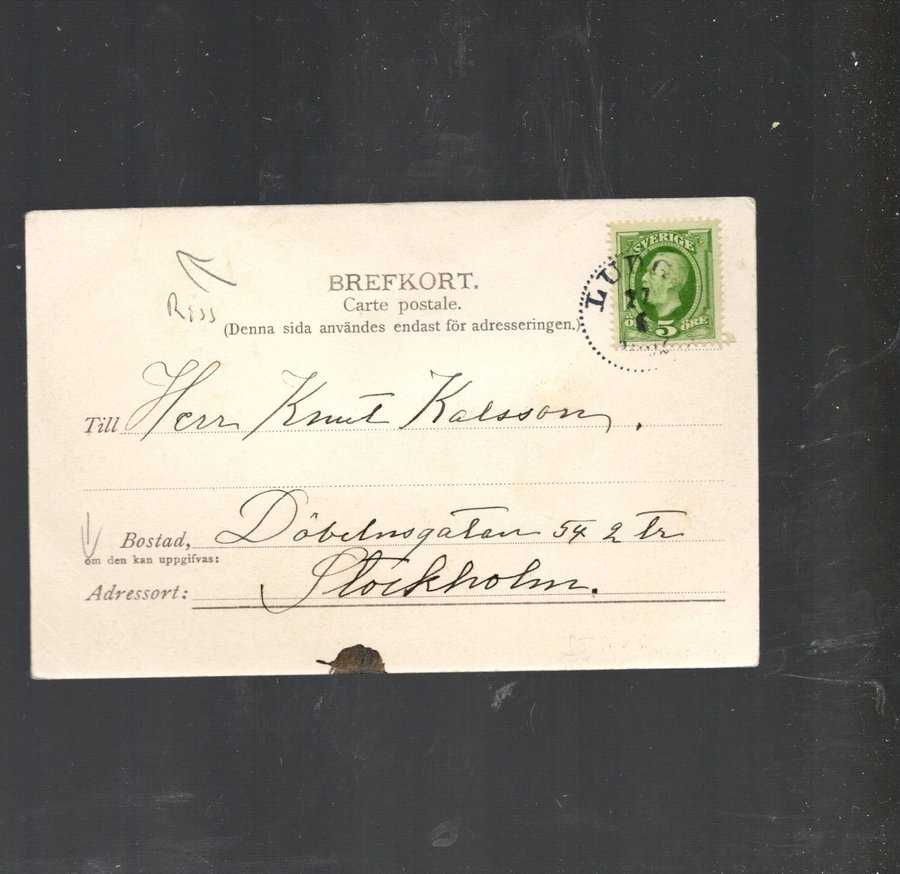 BREFKORT.
Carte postale.
(Denna sida användes endast för adresseringen.)
SVERIGE
5
ÖRE
27
Till Herr Knut Kalsson.
Bostad, Döbelnsgatan 54 2 tr
om den kan uppgifvas:
Adressort: Stockholm.